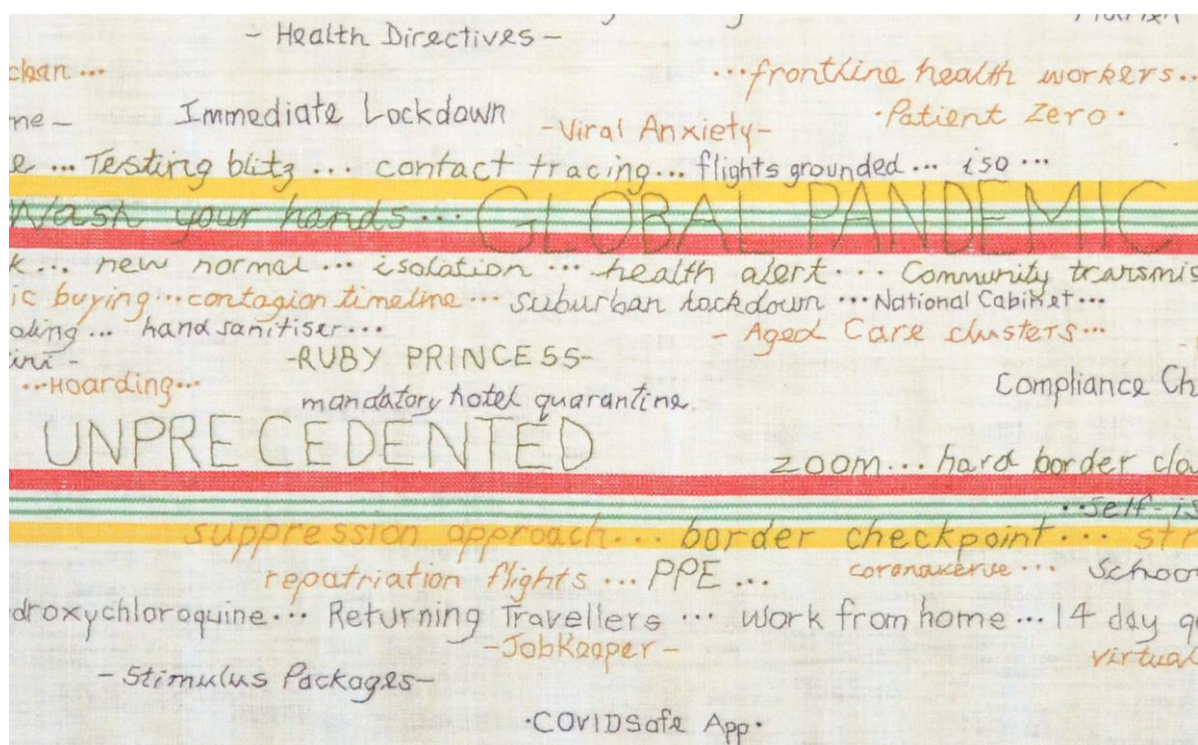 - Health Directives -
clean ...
...frontline health workers...
Immediate Lockdown
-Viral Anxiety-
·Patient Zero·
... Testing blitz ... contact tracing... flights grounded ... iso ...
Wash your hands... GLOBAL PANDEMIC
... new normal ... isolation ... health alert ... Community transmis
ic buying ... contagion timeline ... suburban lockdown ... National Cabinet ...
... hand sanitiser...
- Aged Care clusters...
-RUBY PRINCESS-
...Hoarding...
mandatory hotel quarantine.
Compliance Ch
UNPRECEDENTED
zoom... hard border clo
..self-is
suppression approach... border checkpoint... str
repatriation flights ... PPE ...
coronaverse ...
School
droxychloroquine... Returning Travellers ... work from home ... 14 day q
-JobKeeper-
virtual
-Stimulus Packages-
·COVIDSafe App·